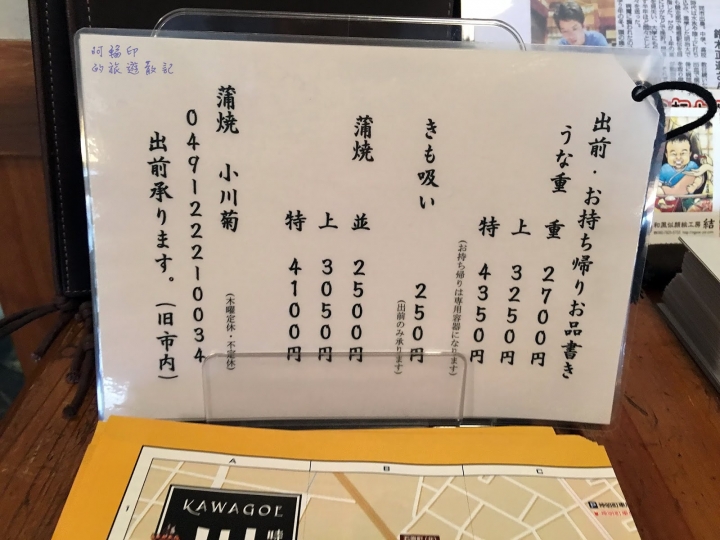 阿福印
的旅遊散記
出前・お持ち帰りお品書き
うな重 重 2700円
上 3250円
特 4350円
(お持ち帰りは専用容器になります)
きも吸い 250円
(出前のみ承ります)
蒲焼 並 2500円
上 3050円
特 4100円
蒲焼 小川菊
(木曜定休・不定休)
0491222110034
出前承ります。(旧市内)
和風似顔絵工房 結
A
B
C
KAWAGOE